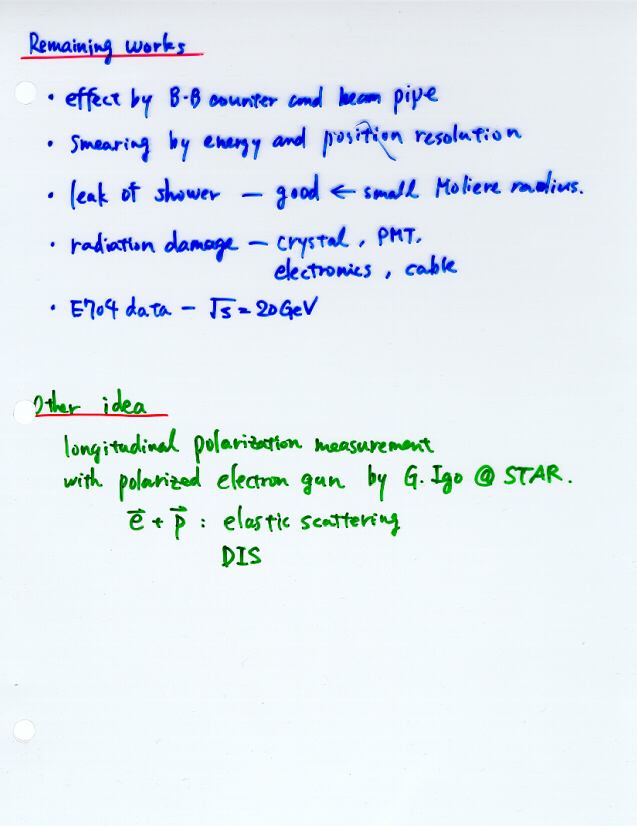 Remaining works
• effect by B-B counter and beam pipe
• Smearing by energy and position resolution
• leak of shower — good ← small Moliere radius.
• radiation damage — crystal, PMT,
electronics, cable
• E704 data — √s = 20 GeV
Other idea
longitudinal polarization measurement
with polarized electron gun by G. Igo @ STAR.
e⃗ + p⃗ : elastic scattering
DIS